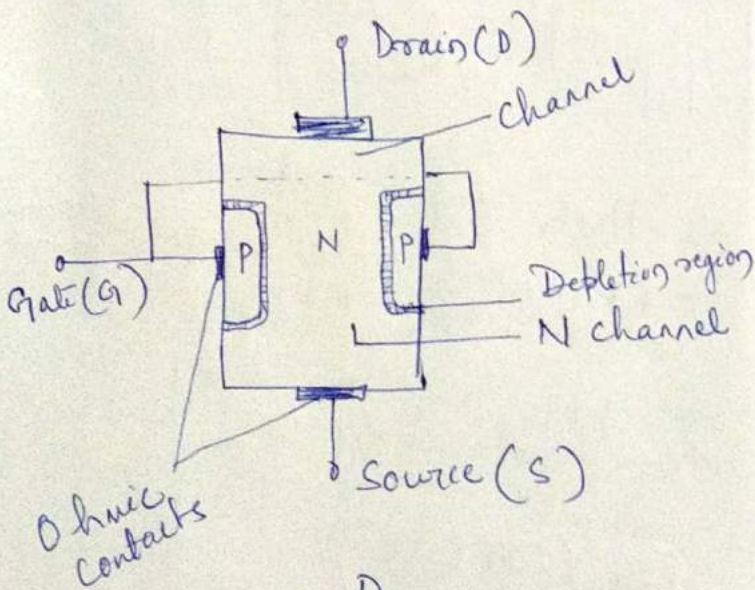 Drain (D)
Channel
P
N
P
Gate (G)
Depletion region
N channel
Source (S)
Ohmic
contacts
D